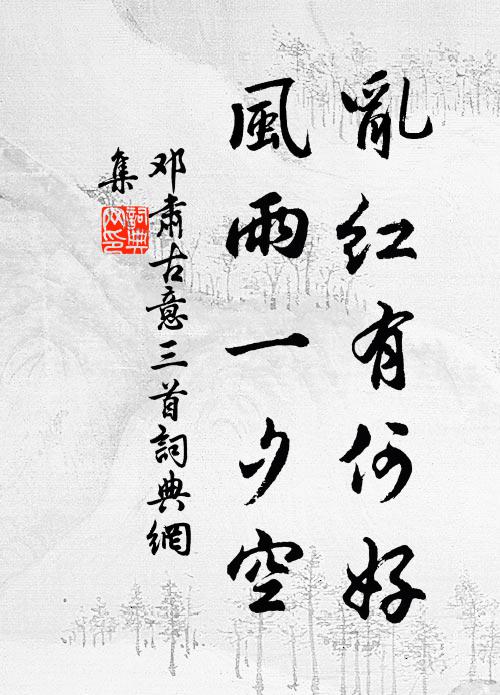 亂紅有何好
風雨一夕空
邓肅古意三首詞典網
集
詞典
网印